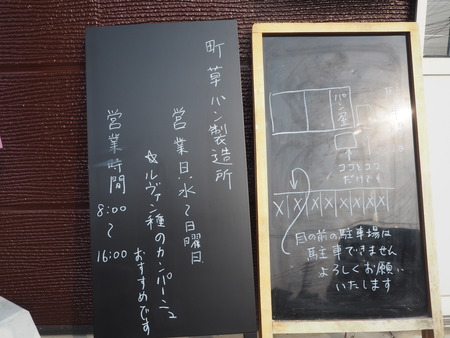 町草パン製造所
営業日:水〜日曜日
☆ルヴァン種のカンパーニュ
おすすめです
営業時間
8:00
〜
16:00
パン屋
ココとココ
だけです
X X X X X X X X
目の前の駐車場は
駐車できません
よろしくお願い
いたします